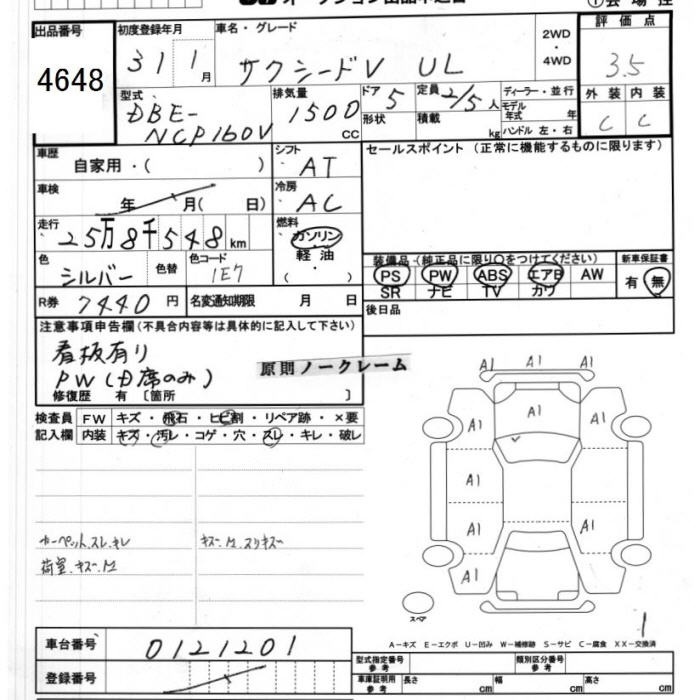 出品番号
4648
初度登録年月
31 1月
車名・グレード
サクシードV UL
2WD
・
4WD
評価点
3.5
外装 内装
C C
型式
DBE-
NCP160V
排気量
1500
cc
ドア 5
形状
定員 2/5人
積載 kg
ディーラー・並行
モデル
年式 年
ハンドル 左・右
車歴
自家用・( )
シフト
AT
セールスポイント (正常に機能するものに限ります)
車検
年 月( 日)
冷房
AC
走行
25万8千548km
燃料
ガソリン
軽油
( ・ )
色
シルバー
色替
色コード
1E7
装備品-(純正品に限り○をつけてください)
PS PW ABS エアB AW
SR ナビ TV カワ
新車保証書
有 ・ 無
R券 7440円
名変通知期限 月 日
後日品
注意事項申告欄 (不具合内容等は具体的に記入して下さい)
看板有り
PW(D席のみ)
原則ノークレーム
修復歴 有 〔箇所 〕
検査員
記入欄
FW キズ・飛石・ヒビ割・リペア跡・×要
内装 キズ・汚レ・コゲ・穴・スレ・キレ・破レ
カーペット.スレ.キレ
キズ.凹.スリキズ
荷室.キズ.凹
A1 A1 A1
A1 A1 A1
A1 A1
A1 A1
A1
スペア
1
A-キズ E-エクボ U-凹み W-補修跡 S-サビ C-腐食 XX-交換済
車台番号 0121201
登録番号
型式指定番号
参考
類別区分番号
参考
車庫証明用
参考
長さ cm
幅 cm
高さ cm